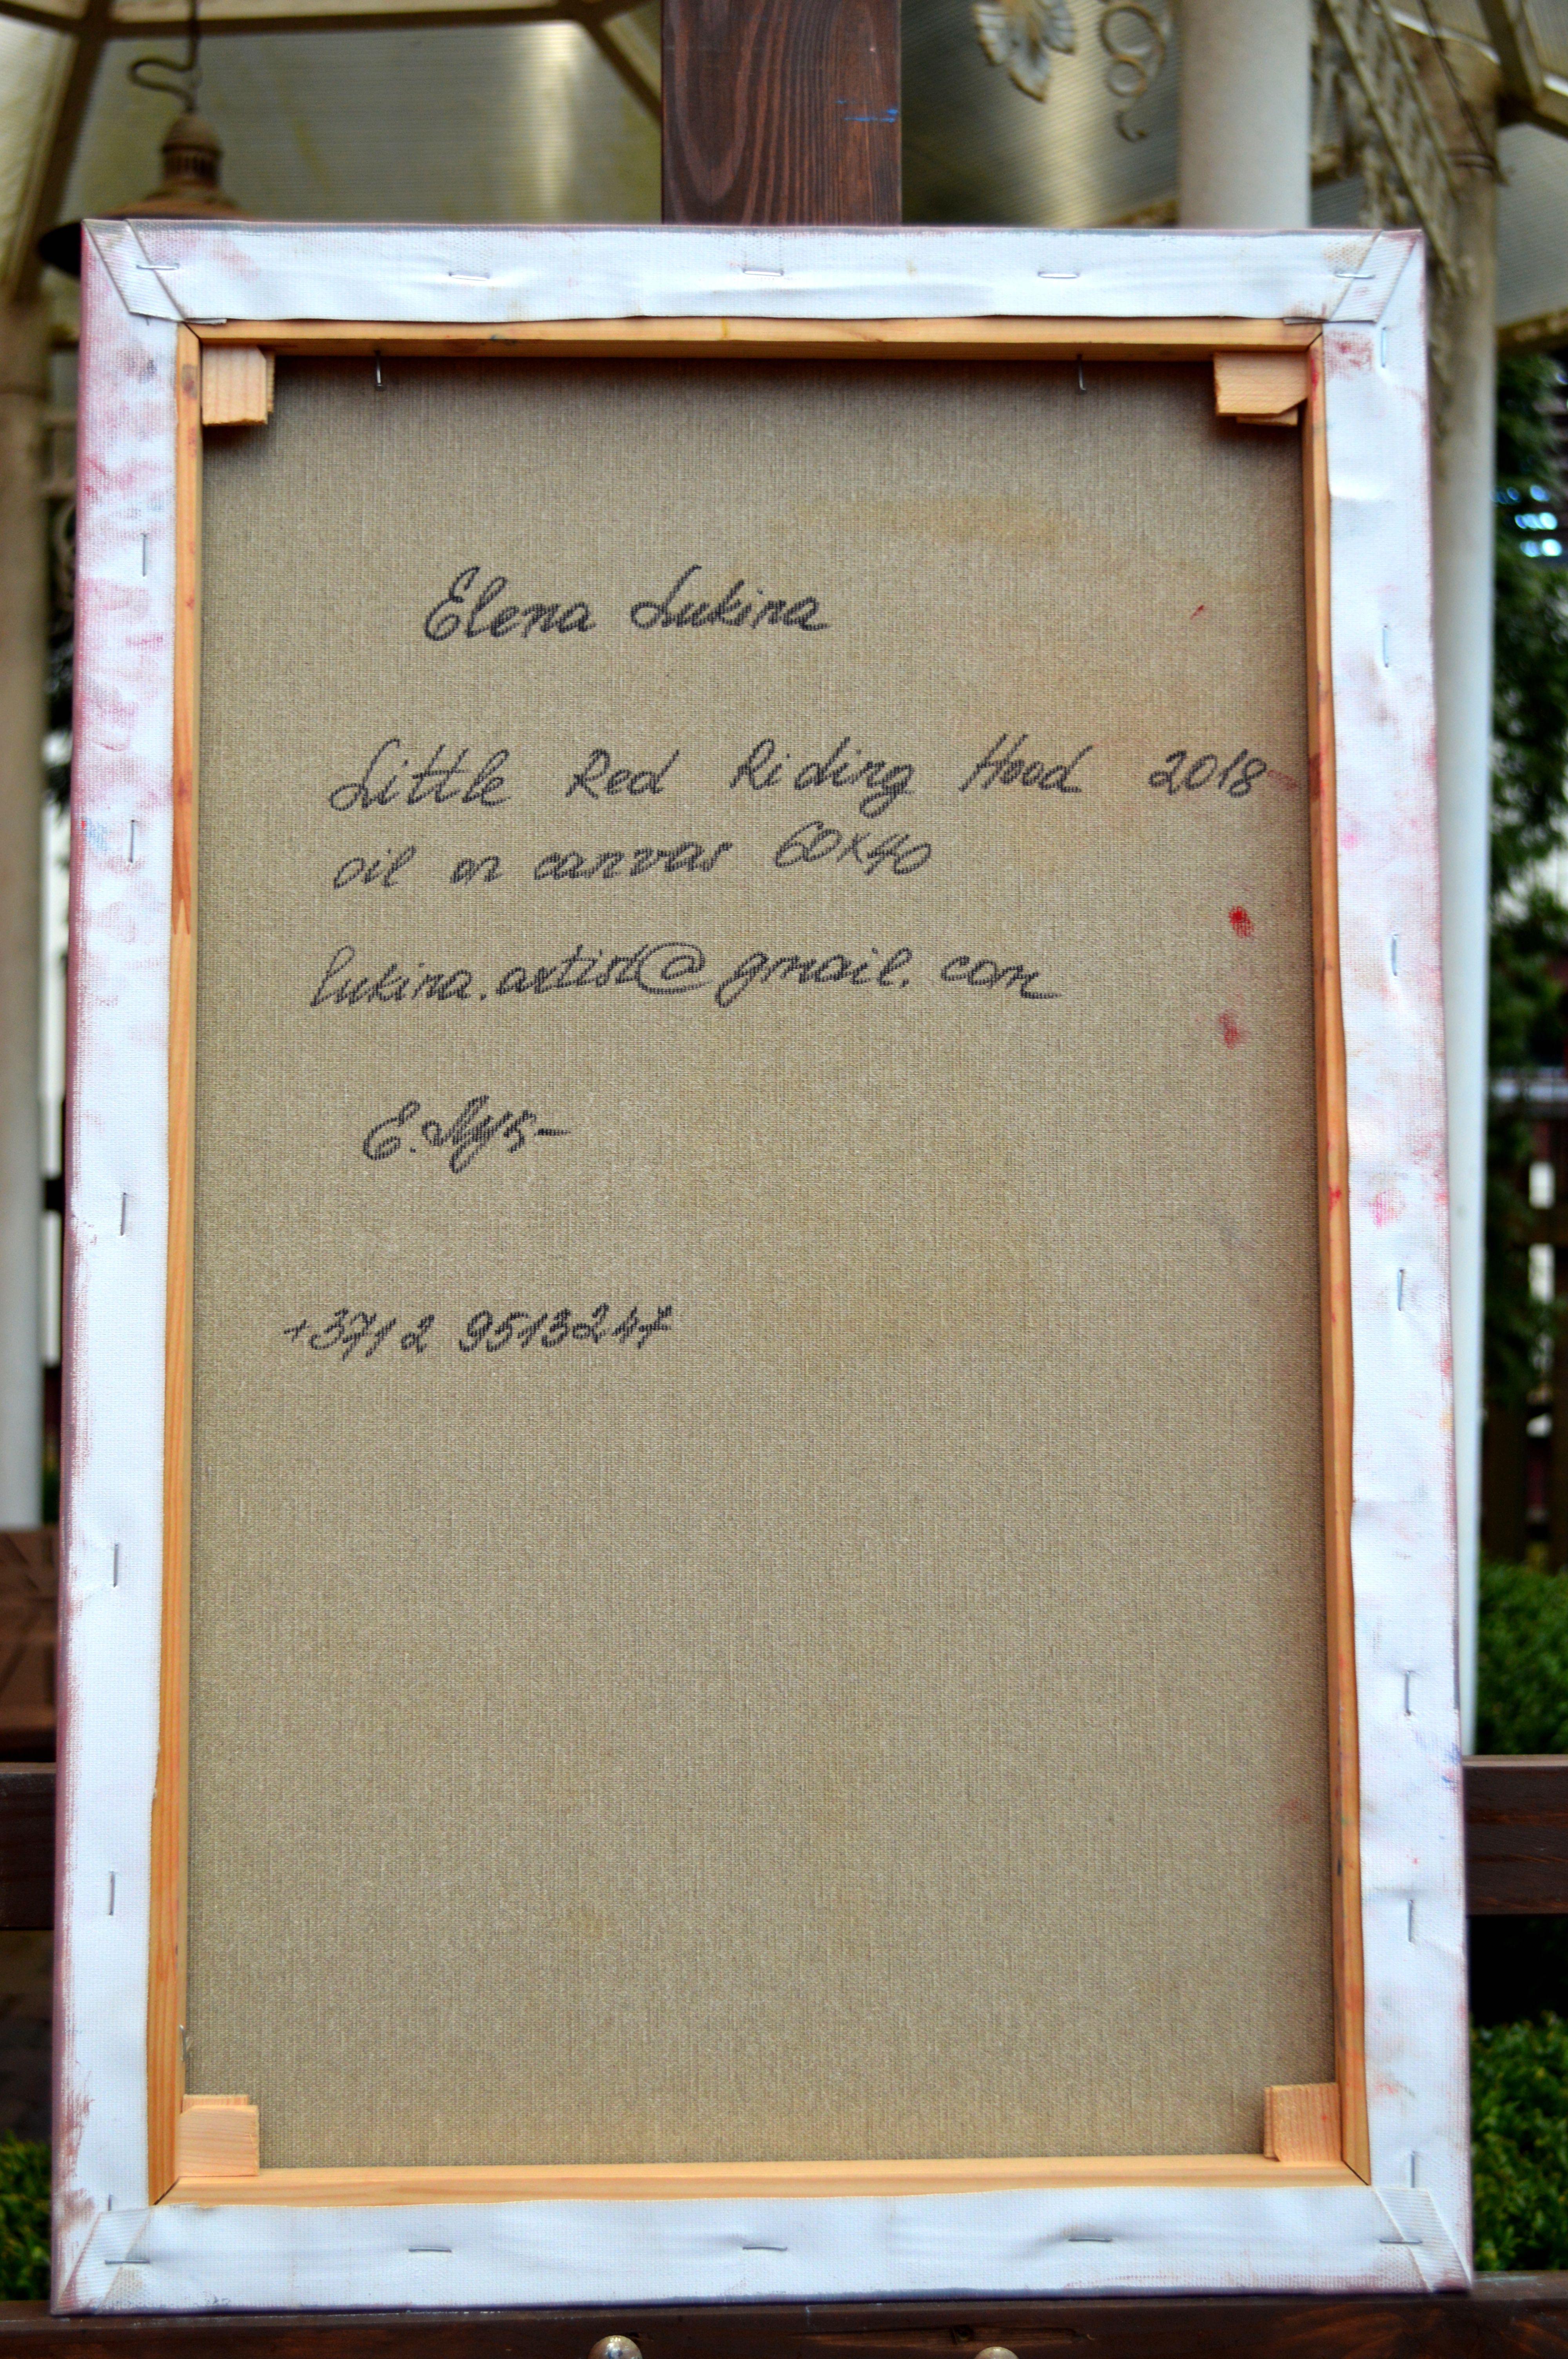 Elena Lukina
Little Red Riding Hood 2018
oil on canvas 60x40
lukina.artist@gmail.com
E. Лук-
+3712 9513247